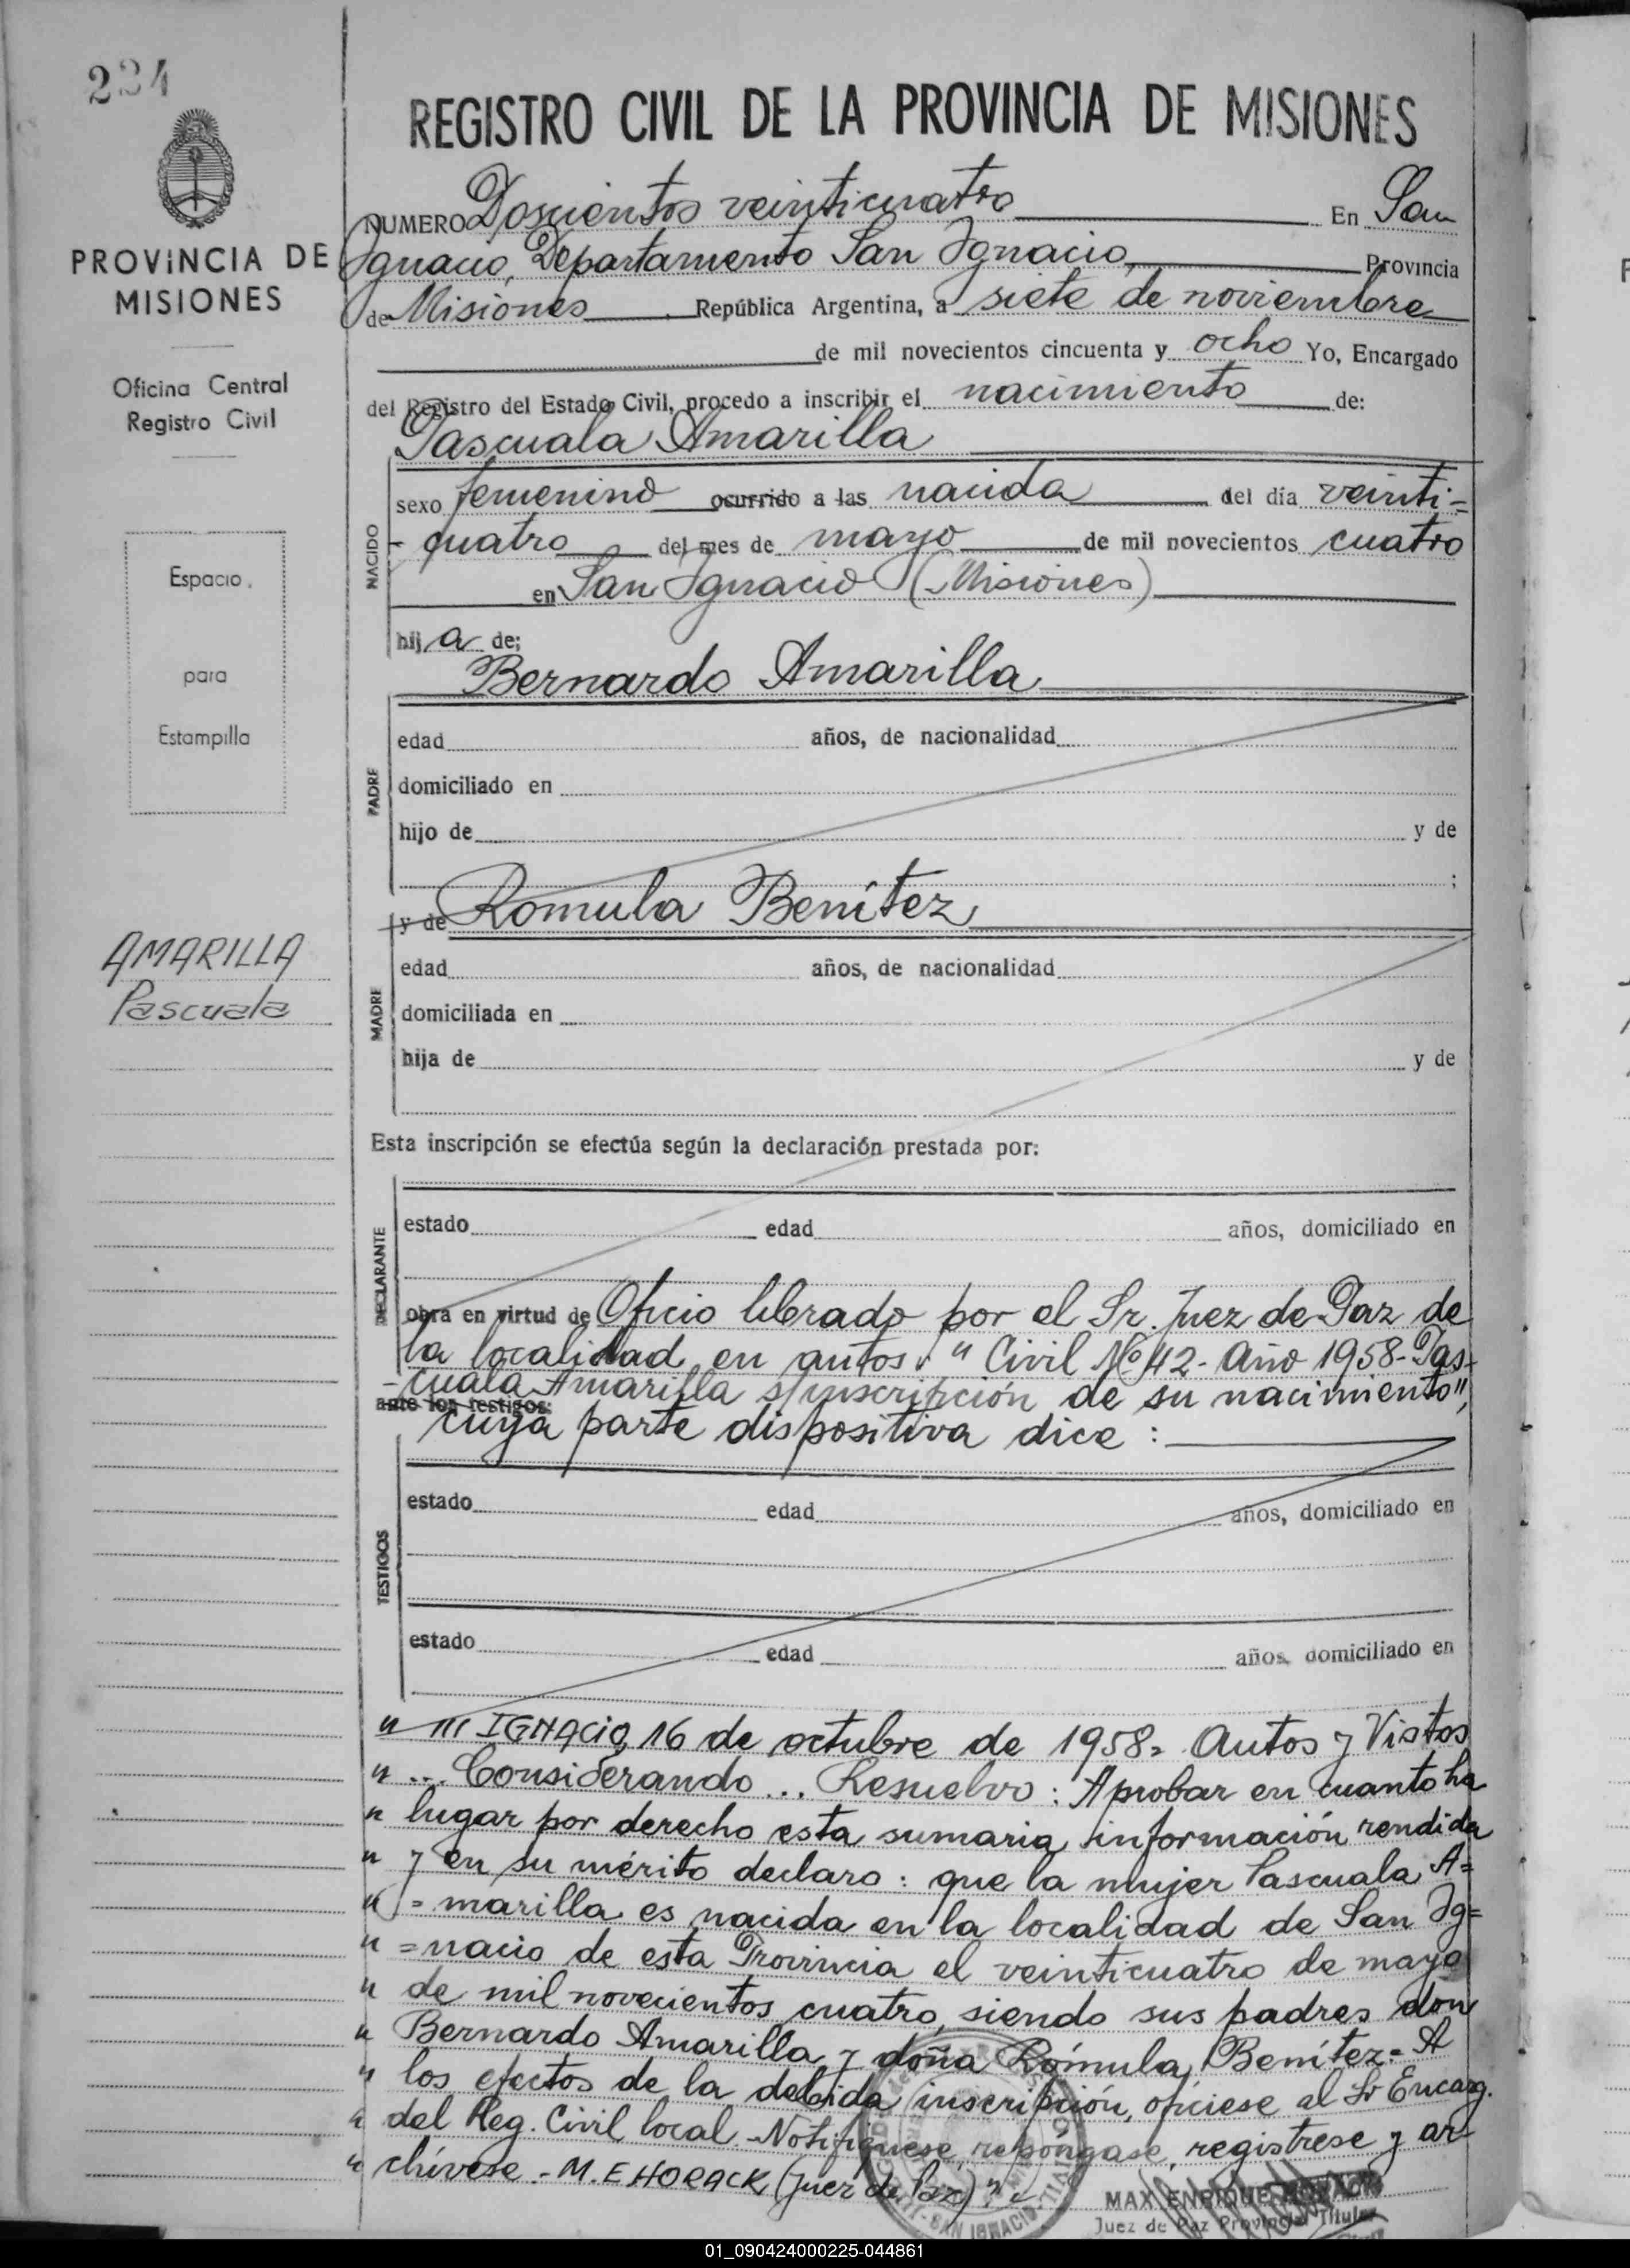 224
PROVINCIA DE
MISIONES
Oficina Central
Registro Civil
Espacio
para
Estampilla
AMARILLA
Pascuala
REGISTRO CIVIL DE LA PROVINCIA DE MISIONES
NUMERO Doscientos veinticuatro En San
Ignacio, Departamento San Ignacio, Provincia
de Misiones República Argentina, a siete de noviembre
de mil novecientos cincuenta y ocho Yo, Encargado
del Registro del Estado Civil, procedo a inscribir el nacimiento de:
Pascuala Amarilla
NACIDO
sexo femenino ocurrido a las nacida del día veinti=
- cuatro del mes de mayo de mil novecientos cuatro
en San Ignacio (Misiones)
hij a de;
Bernardo Amarilla
PADRE
edad años, de nacionalidad
domiciliado en
hijo de y de
;
y de Romula Benítez
MADRE
edad años, de nacionalidad
domiciliada en
hija de y de
Esta inscripción se efectúa según la declaración prestada por:
DECLARANTE
estado edad años, domiciliado en
obra en virtud de Oficio librado por el Sr. Juez de Paz de
la localidad en autos: " Civil Nº 42- Año 1958- Pas-
- cuala Amarilla s/inscripción de su nacimiento",
ante los testigos:
cuya parte dispositiva dice :
TESTIGOS
estado edad años, domiciliado en
estado edad años, domiciliado en
" /// IGNACIO, 16 de octubre de 1958.- Autos y Vistos
" ... Considerando ... Resuelvo : Aprobar en cuanto ha
" lugar por derecho esta sumaria información rendida
" y en su mérito declaro : que la mujer Pascuala A=
" = marilla es nacida en la localidad de San Ig=
" =nacio de esta Provincia el veinticuatro de mayo
" de mil novecientos cuatro, siendo sus padres don
" Bernardo Amarilla y doña Rómula Benítez.= A
" los efectos de la debida inscripción, ofíciese al Sr Encarg.
" del Reg. Civil local.- Notifíquese, repóngase, regístrese y ar-
" chívese.- M. E HORACK (Juez de Paz)".-
SAN IGNACIO
MAX ENRIQUE HORACK
Juez de Paz Provincial Titular
01_090424000225-044861